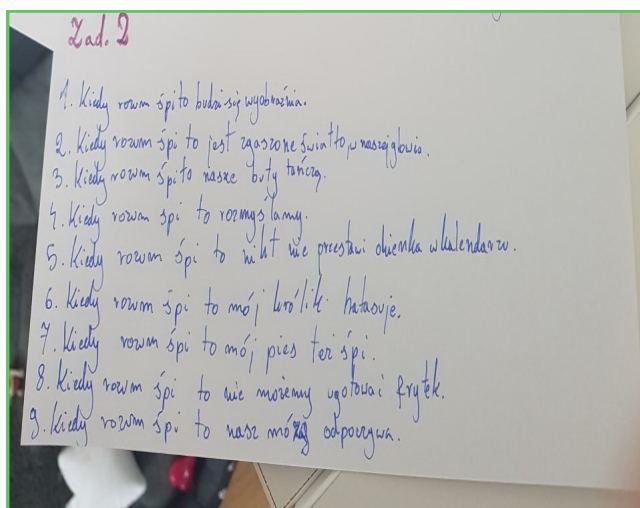 Zad. 2
1. Kiedy rozum śpi to budzi się wyobraźnia.
2. Kiedy rozum śpi to jest zgaszone światło, w naszej głowie.
3. Kiedy rozum śpi to nasze buty tańczą.
4. Kiedy rozum śpi to rozmyślamy.
5. Kiedy rozum śpi to nikt nie przestawi okienka w kalendarzu.
6. Kiedy rozum śpi to mój królik hałasuje.
7. Kiedy rozum śpi to mój pies też śpi.
8. Kiedy rozum śpi to nie możemy ugotować frytek.
9. Kiedy rozum śpi to nasz mózg odpoczywa.